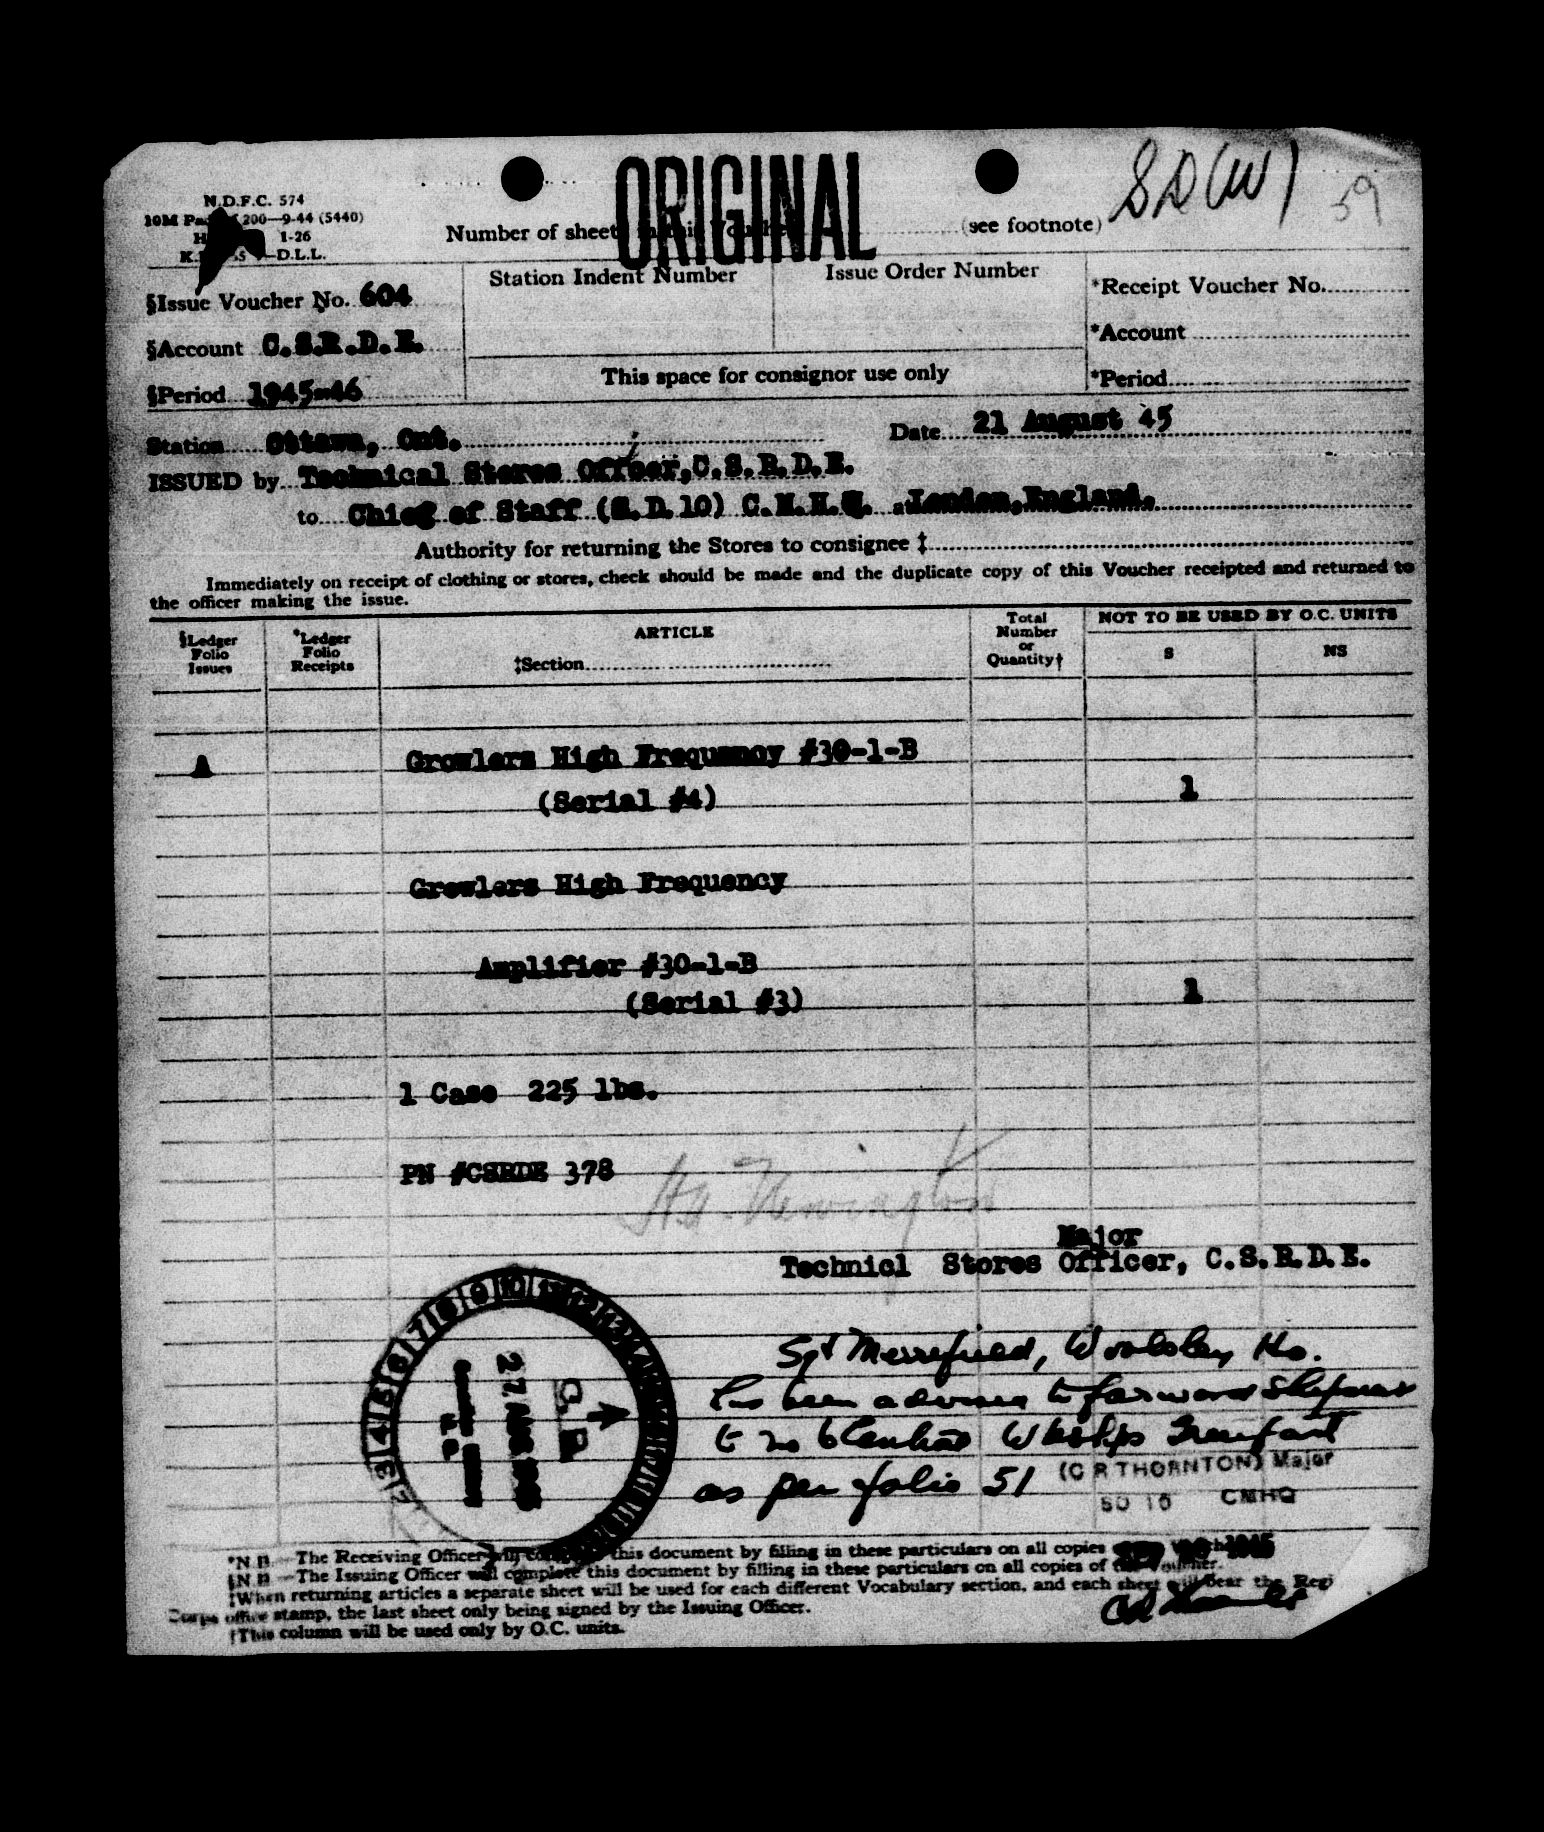 ORIGINAL
SD(W)1
59
N.D.F.C. 574
200—9-44 (5440)
1-26
—D.L.L.
Number of sheets (see footnote)
§Issue Voucher No. 604
§Account C.S.R.D.E.
§Period 1945-46
Station Indent Number
Issue Order Number
This space for consignor use only
*Receipt Voucher No.
*Account
*Period
Station Ottawa, Ont.
Date 21 August 45
ISSUED by Technical Stores Officer, C.S.R.D.E.
to Chief of Staff (S.D.10) C.M.H.Q. at London, England.
Authority for returning the Stores to consignee ‡
Immediately on receipt of clothing or stores, check should be made and the duplicate copy of this Voucher receipted and returned to
the officer making the issue.
§Ledger Folio Issues
*Ledger Folio Receipts
ARTICLE
‡Section
Total Number or Quantity†
NOT TO BE USED BY O.C. UNITS
S NS
A Growlers High Frequency #30-1-B
(Serial #4) 1
Growlers High Frequency
Amplifier #30-1-B
(Serial #3) 1
1 Case 225 lbs.
PN #CSRDE 378
Major
Technicl Stores Officer, C.S.R.D.E.
2 3 4 5 6 7 8 9 10 11 12 13
C.R.
27 AUG 1945
Sgt Merrefield, Wolsley Ho.
has been advised to forward
to No 1 Wkshps
as per folio 51
(C R THORNTON) Major
SD 10 CMHQ
1945
*N.B.—The Receiving Officer will complete this document by filling in these particulars on all copies
§N.B.—The Issuing Officer will complete this document by filling in these particulars on all copies of the voucher.
‡When returning articles a separate sheet will be used for each different Vocabulary section, and each sheet will bear the Regt
Corps office stamp, the last sheet only being signed by the Issuing Officer.
†This column will be used only by O.C. units.